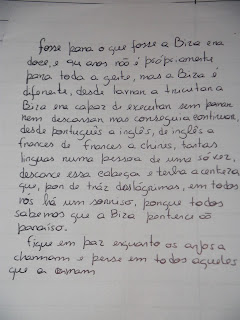 fosse para o que fosse a Biza era
doce, e 94 anos não é própiamente
para toda a gente, mas a Biza é
diferente, desde lavrar a trucutar a
Biza era capaz de executar sem parar
nem descansar mas conseguia continuar,
desde português a inglês, de inglês a
frances de frances a chines, tantas
linguas numa pessoa de uma só vez,
descance essa cabeça e tenha a certeza
que, por de tráz das lágrimas, em todos
nós há um sorriso, porque todos
sabemos que a Biza pertence ao
paraíso.
fique em paz enquanto os anjos a
chamam e pense em todos aqueles
que a amam